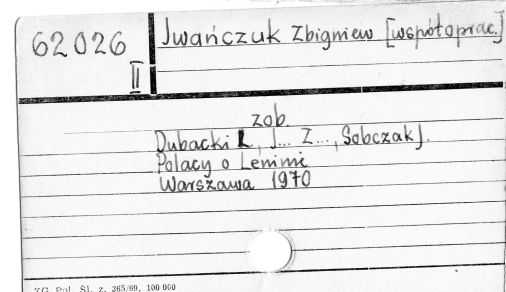 62026
II
Iwańczuk Zbigniew [współoprac.]
zob.
Dubacki L., I... Z..., Sobczak J.
Polacy o Leninie
Warszawa 1970
ZG Pol. Śl. z. 365/69, 100 000